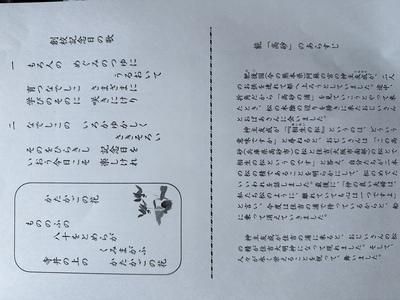 創校記念日の歌
一 もろ人の めぐみのつゆに
うるおいて
育つなでしこ さまざまに
学びのそのに 咲きにけり
二 なでしこの いろかゆかしく
さきそろい
そのをひらきし 記念日を
いおう今日こそ 楽しけれ
かたかごの花
もののふの
八十をとめらが
くみまがふ
寺井の上の
かたかごの花
能「高砂」のあらすじ
肥後国(今の熊本県阿蘇)の宮の神主友成が、二人
のお供を連れて都へ上ろうとしていました。途中、
折角だから「高砂の浦」を見ていこうとやって来
たとき、松の木陰の辺りを掃きに来たおじいさん
とおばあさんに会いました。
神主友成が「『相生の松』というのは、どういう
意味ですか」と尋ねると、おじいさんは「この高
砂(兵庫県高砂市)の松と住吉(大阪市南部)の松とで
相生の松というのです」と答え、自分たちが二本
の松の精であるのを明らかにして、松のめでたい
いいわれを話しました。最後に「仲の良い夫婦は、
私たち松のように、離れていても心は一つですよ」
と言い、今度は住吉の浦で待っているからと、船
に乗って消えていきました。
神主友成が住吉の浦に来ると、おじいさんの松
の精が住吉大明神になって現れました。そして、
人々が永く栄えることを祝って、舞いました。